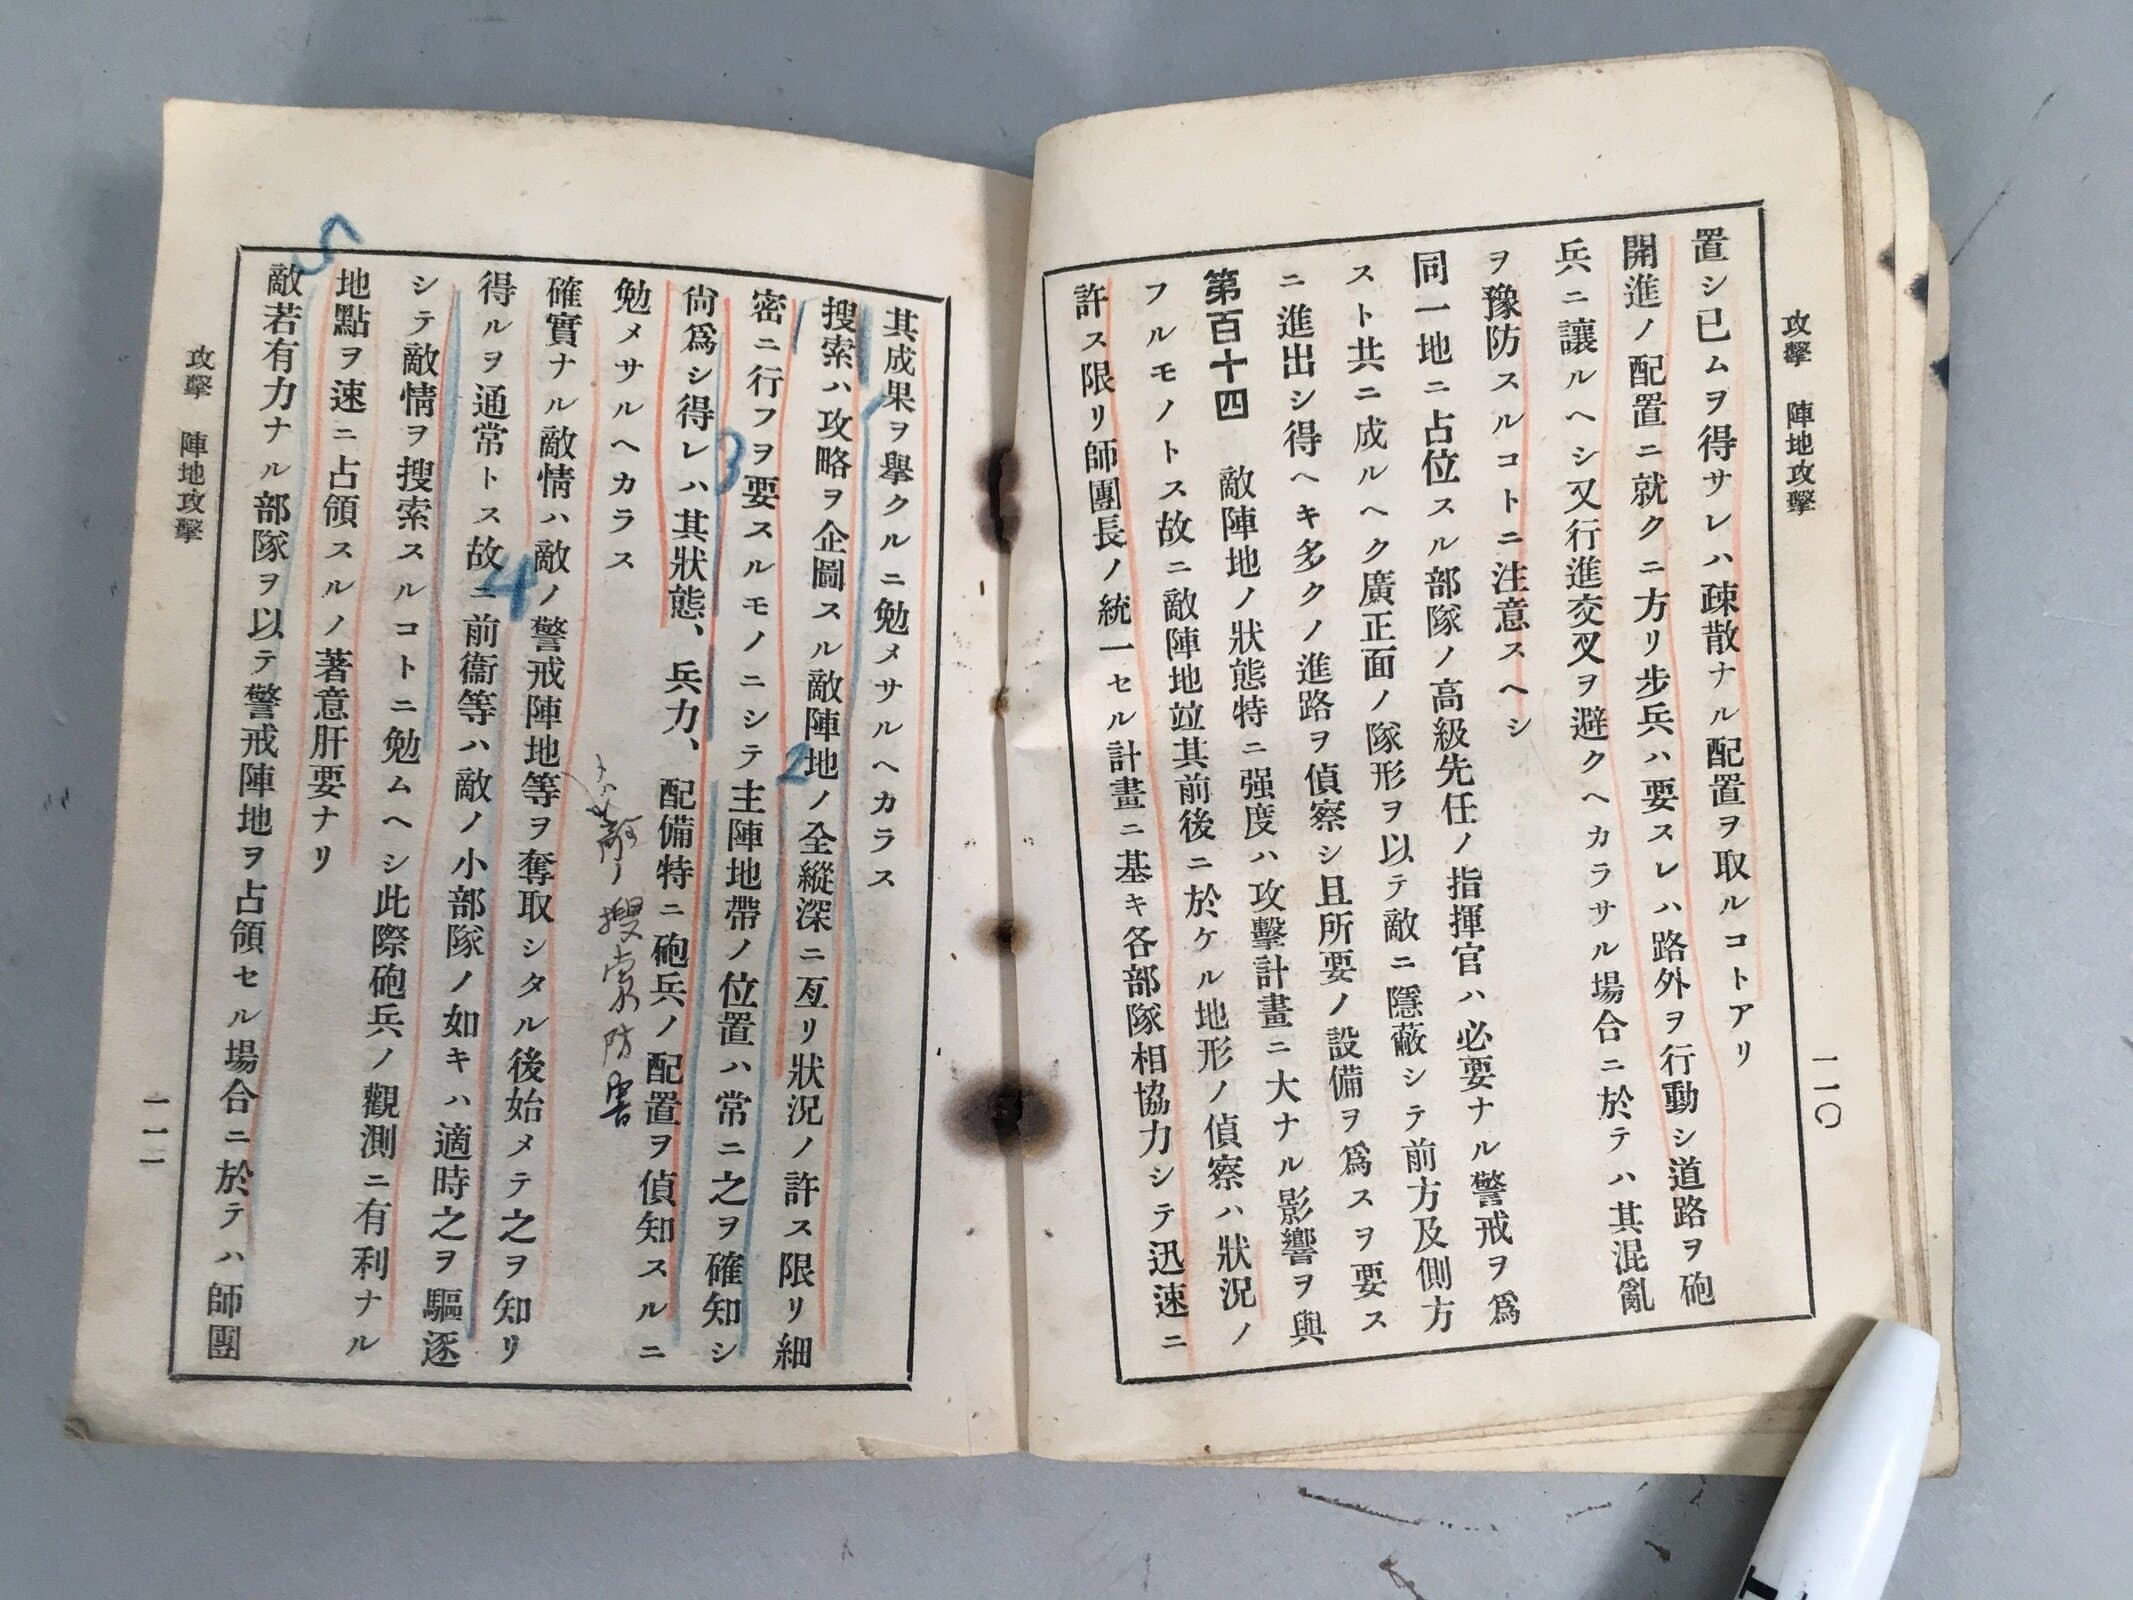 攻擊 陣地攻擊
一一〇
置シ已ムヲ得サレハ疎散ナル配置ヲ取ルコトアリ
開進ノ配置ニ就クニ方リ步兵ハ要スレハ路外ヲ行動シ道路ヲ砲
兵ニ讓ルヘシ又行進交叉ヲ避クヘカラサル場合ニ於テハ其混亂
ヲ豫防スルコトニ注意スヘシ
同一地ニ占位スル部隊ノ高級先任ノ指揮官ハ必要ナル警戒ヲ爲
スト共ニ成ルヘク廣正面ノ隊形ヲ以テ敵ニ隱蔽シテ前方及側方
ニ進出シ得ヘキ多クノ進路ヲ偵察シ且所要ノ設備ヲ爲スヲ要ス
第百十四 敵陣地ノ狀態特ニ强度ハ攻擊計畫ニ大ナル影響ヲ與
フルモノトス故ニ敵陣地竝其前後ニ於ケル地形ノ偵察ハ狀況ノ
許ス限リ師團長ノ統一セル計畫ニ基キ各部隊相協力シテ迅速ニ
其成果ヲ擧クルニ勉メサルヘカラス
搜索ハ攻略ヲ企圖スル敵陣地ノ全縱深ニ亙リ狀況ノ許ス限リ細
密ニ行フヲ要スルモノニシテ主陣地帶ノ位置ハ常ニ之ヲ確知シ
尙爲シ得レハ其狀態、兵力、配備特ニ砲兵ノ配置ヲ偵知スルニ
勉メサルヘカラス
搜索防害
確實ナル敵情ハ敵ノ警戒陣地等ヲ奪取シタル後始メテ之ヲ知リ
得ルヲ通常トス故ニ前衞等ハ敵ノ小部隊ノ如キハ適時之ヲ驅逐
シテ敵情ヲ搜索スルコトニ勉ムヘシ此際砲兵ノ觀測ニ有利ナル
地點ヲ速ニ占領スルノ著意肝要ナリ
敵若有力ナル部隊ヲ以テ警戒陣地ヲ占領セル場合ニ於テハ師團
2
3
4
5
攻擊 陣地攻擊
一一一